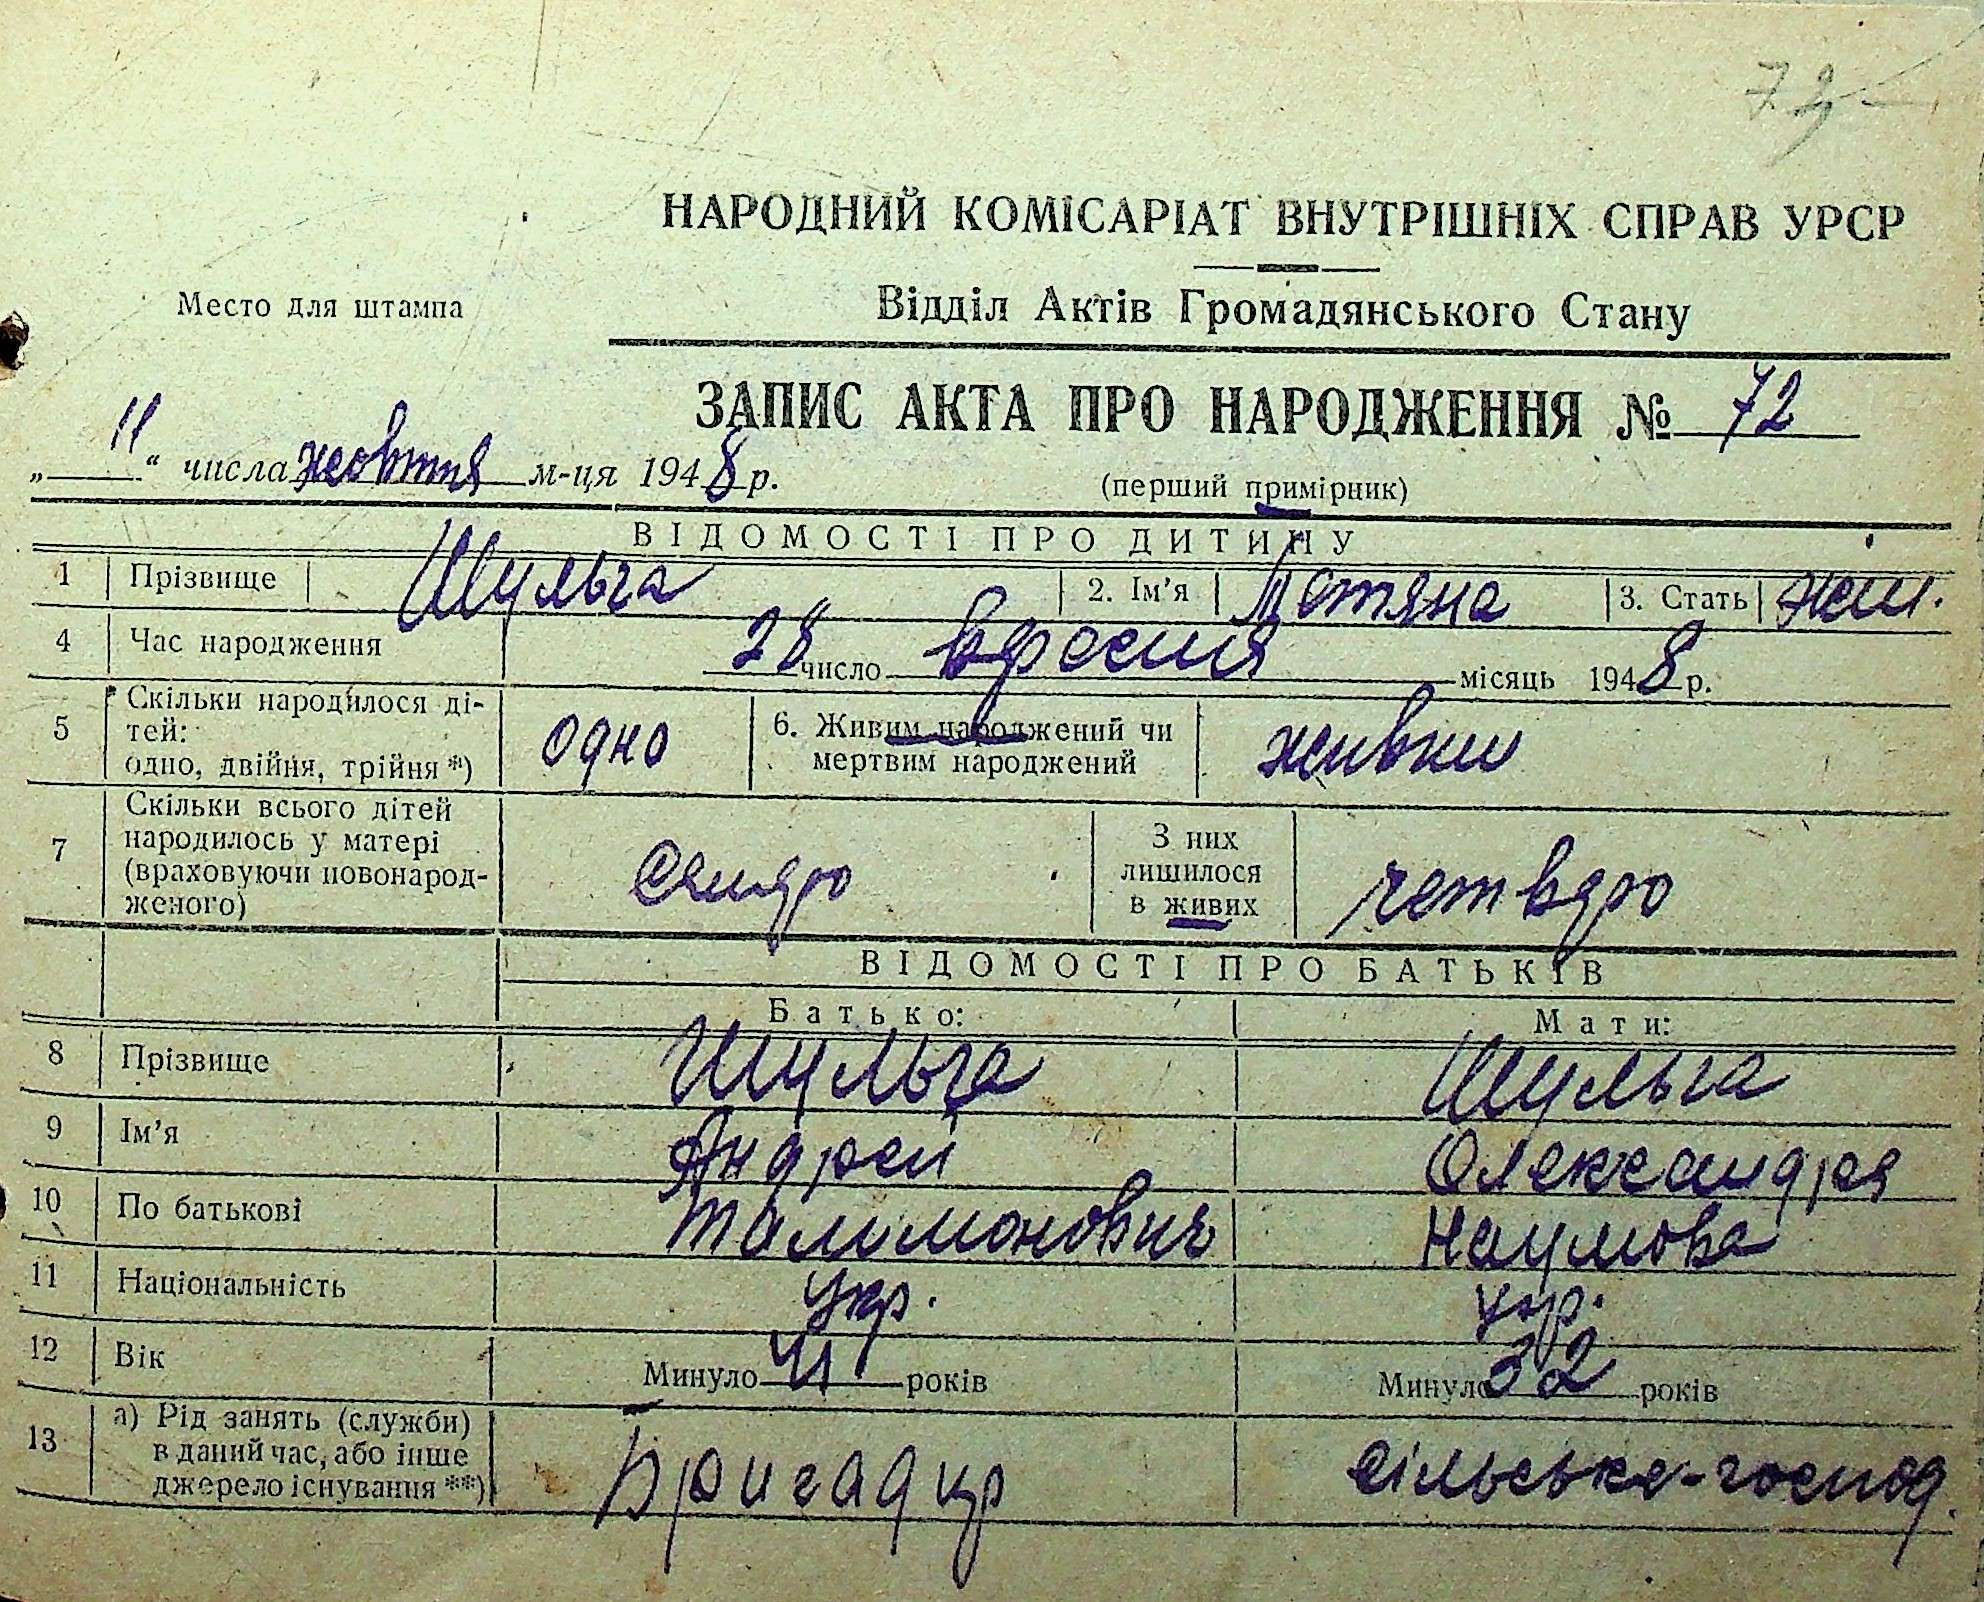 72
НАРОДНИЙ КОМІСАРІАТ ВНУТРІШНІХ СПРАВ УРСР
Место для штампа
Відділ Актів Громадянського Стану
ЗАПИС АКТА ПРО НАРОДЖЕННЯ № 72
„ 11 “ числа жовтня м-ця 1948 р.
(перший примірник)
ВІДОМОСТІ ПРО ДИТИНУ
1 Прізвище Шульга 2. Ім’я Тетяна 3. Стать жін.
4 Час народження 28 число вресня місяць 1948 р.
5 Скільки народилося ді-
тей:
одно, двійня, трійня *) одно 6. Живим народжений чи
мертвим народжений живим
7 Скільки всього дітей
народилось у матері
(враховуючи новонарод-
женого) семеро З них
лишилося
в живих четверо
ВІДОМОСТІ ПРО БАТЬКІВ
Батько: Мати:
8 Прізвище Шульга Шульга
9 Ім’я Андрей Олександра
10 По батькові Наумова
11 Національність укр. укр.
12 Вік Минуло 41 років Минуло 32 років
13 а) Рід занять (служби)
в даний час, або інше
джерело існування **) Бригадир сільське-господ.